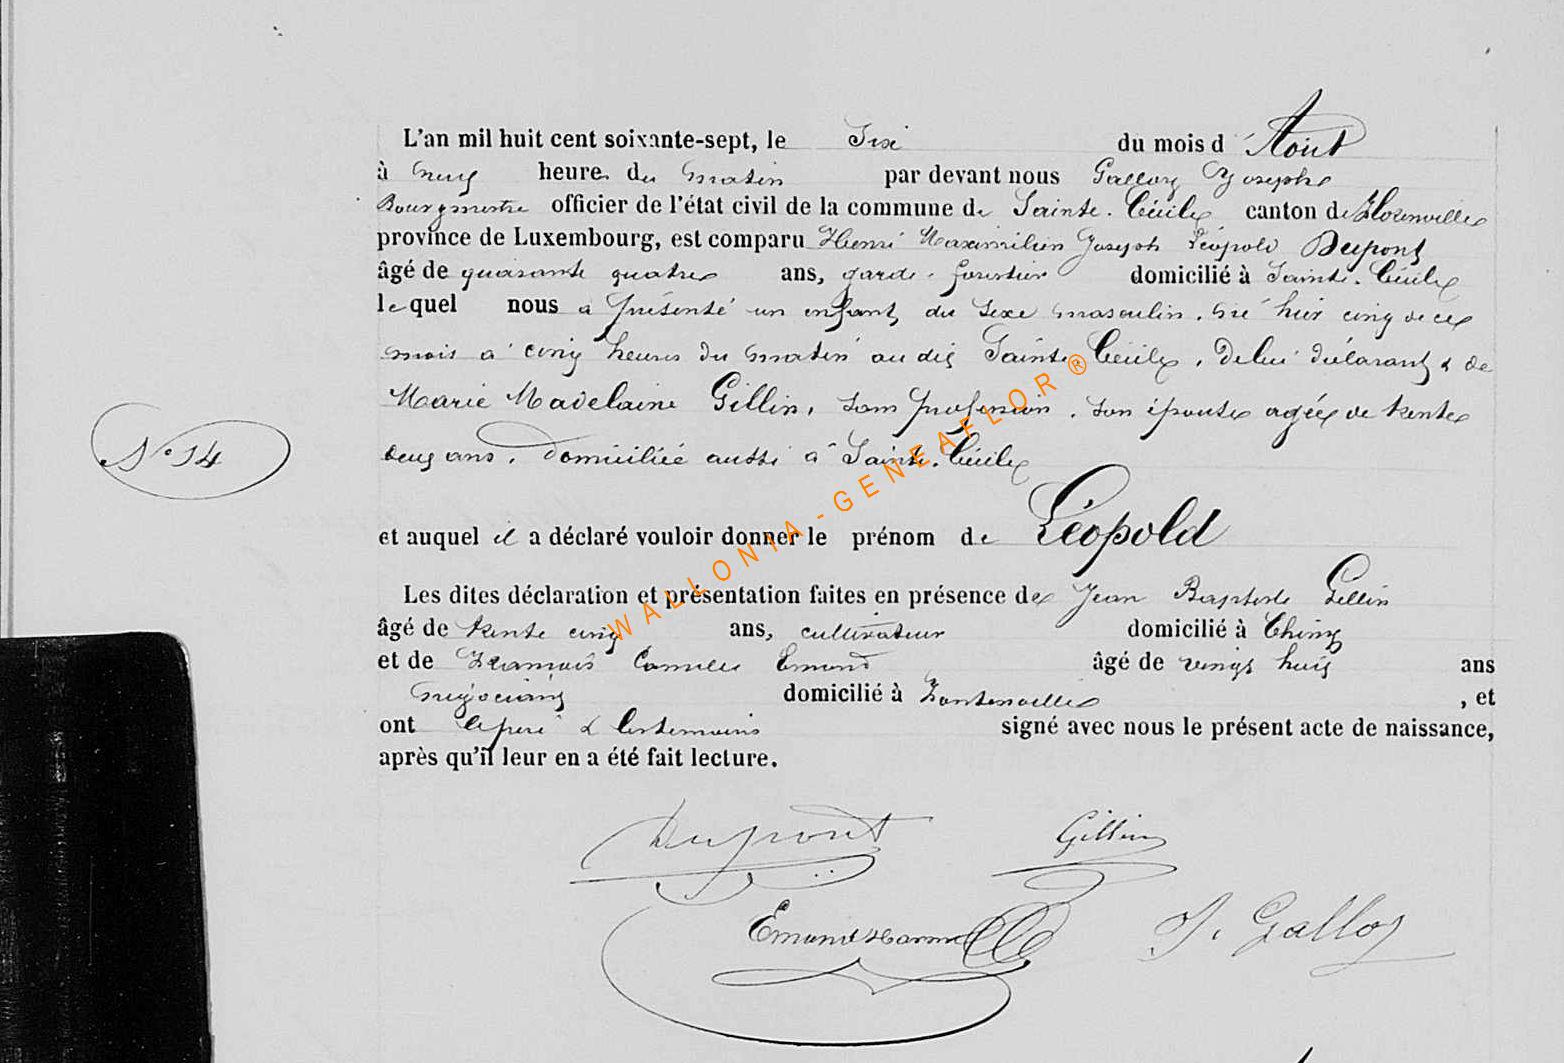 L'an mil huit cent soixante-sept, le Six du mois d'Août
à neuf heures du matin par devant nous Galloy Joseph
Bourgmestre officier de l'état civil de la commune de Sainte-Cécile canton de Florenville
province de Luxembourg, est comparu Henri Maximilien Joseph Léopold Dupont
âgé de quarante quatre ans, garde-forestier domicilié à Sainte-Cécile
lequel nous a présenté un enfant du sexe masculin, né hier cinq de ce
mois à cinq heures du matin au dit Sainte Cécile, de lui déclarant & de
Marie Madelaine Gillin, sans profession, son épouse agée de trente
deux ans, domiciliée aussi à Sainte-Cécile
N° 14
et auquel il a déclaré vouloir donner le prénom de Léopold
Les dites déclaration et présentation faites en présence de Jean Baptiste Gillin
âgé de trente cinq ans, cultivateur domicilié à Chiny
et de Camille Emond âgé de vingt huit ans
négociant domicilié à Fontenoille, et
ont le père & les témoins signé avec nous le présent acte de naissance,
après qu'il leur en a été fait lecture.
Dupont Gillin
Emond J. Galloy
WALLONIA - GENEAFLOR ®